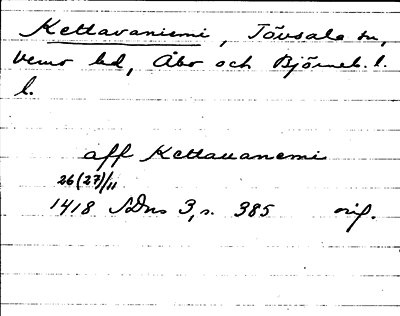 Kettavaniemi, Tövsala sn,
Vemo hd, Åbo och Björneb. l.
l.
aff Kettauanemi
26(27)/11
1418 SDns 3, s. 385 orig.